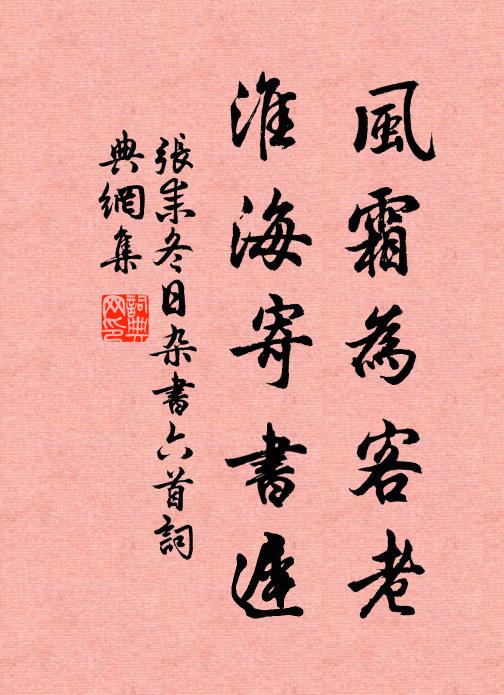 風霜為客老
淮海寄書遲
張耒冬日杂書六首詞
典網集
詞典网印